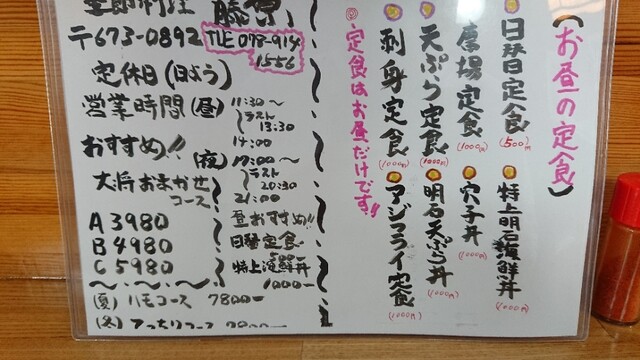 季節料理 藤原
〒673-0892 TEL 078-914
1556
定休日(日よう)
営業時間(昼) 11:30〜
ラスト
13:30
14:00
おすすめ!! (夜) 17:00〜
ラスト
20:30
21:00
大将おまかせ
コース
A 3980
B 4980
C 5980
昼おすすめ!!
日替定食
特上海鮮丼
1000ー
(夏) ハモコース 7800ー
(冬) てっちりコース
(お昼の定食)
日替定食 (500円)
特上明石海鮮丼 (1000円)
定食 (1000円)
穴子丼 (1000円)
天ぷら定食 (1000円)
明石天ぷら丼 (1000円)
刺身定食 (1000円)
アジフライ定食 (1000円)
◎定食はお昼だけです!!